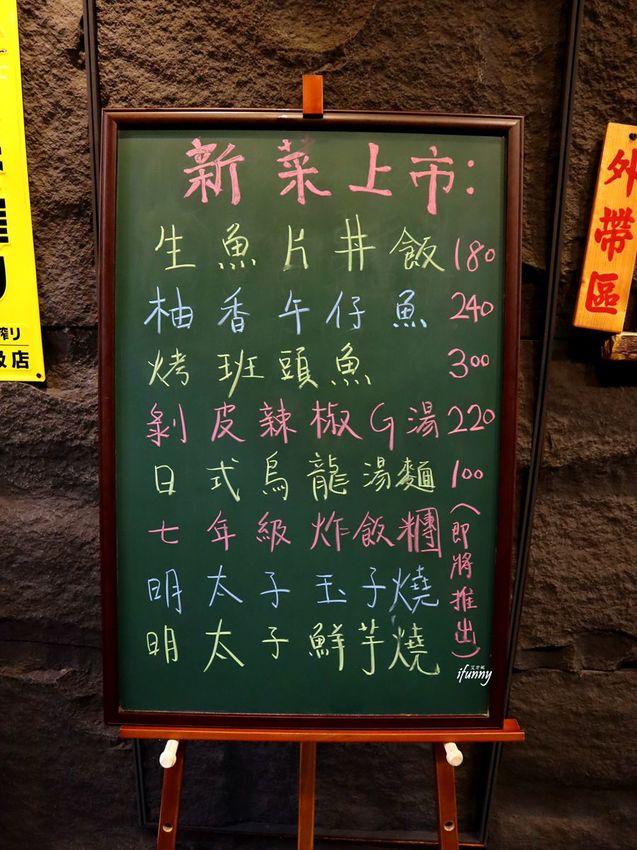 新菜上市:
生魚片丼飯 180
柚香午仔魚 240
烤班頭魚 300
剝皮辣椒G湯 220
日式烏龍湯麵 100
七年級炸飯糰
明太子玉子燒
明太子鮮芋燒
(即將推出)
外帶區
艾方妮
ifunny